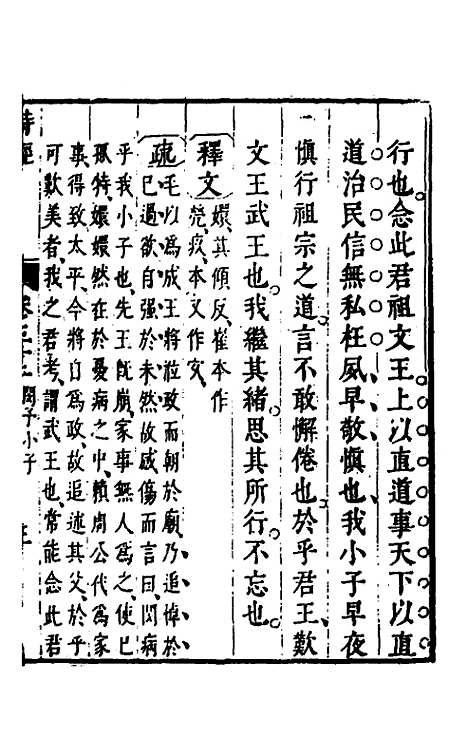 行也。念此君祖文王。上以直道事天下以直
道治民信無私枉夙、早敬慎也、我小子早夜
慎行祖宗之道。言不敢懈倦也。於乎君王、歎
文王武王也。我繼其緒。思其所行。不忘也。
釋文
嬛、其傾反、崔本作
煢、疚、本又作㝌、
疏
毛以為成王將涖政而朝於廟、乃追悼於
已過、欲自强於未然、故感傷而言曰、閔病
乎、我小子也、先王既崩、家事無人為之、使已
孤特、嬛嬛然在於憂病之中、賴周公代為家
事、得致太平、今將自為政、故追述其父、於乎
可歎美者、我之君考、謂武王也、常能念此君
詩經
閔予小子